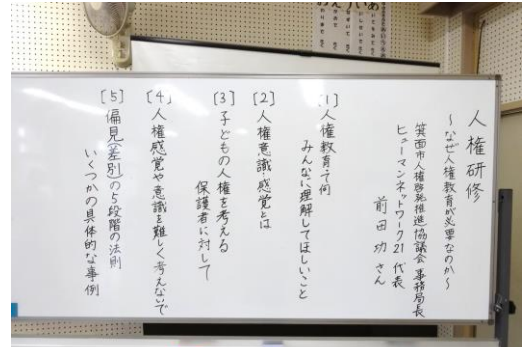 人権研修
～なぜ人権教育が必要なのか～
箕面市人権啓発推進協議会 事務局長
ヒューマンネットワーク21 代表
前田 功 さん
[1]人権教育って何
みんなに理解してほしいこと
[2]人権意識・感覚とは
[3]子どもの人権を考える
保護者に対して
[4]人権感覚や意識を難しく考えないで
[5]偏見(差別)の5段階の法則
いくつかの具体的な事例